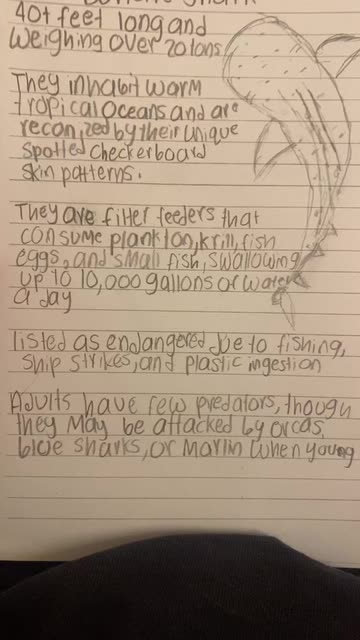 40+ feet long and
weighing over 20 tons
They inhabit warm
tropical oceans and are
reconized by their unique
spotted checkerboard
skin patterns.
They are filter feeders that
consume plankton, krill, fish
eggs, and small fish, swallowing
up to 10,000 gallons of water
a day
listed as endangered due to fishing,
ship strikes, and plastic ingestion
Adults have few predators, though
they may be attacked by orcas,
blue sharks, or marlin when young